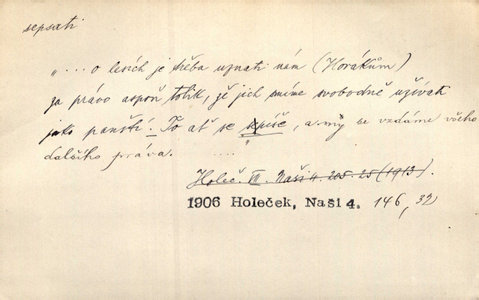 sepsati
"... o lesích je třeba uznati nám (Horákům)
za právo aspoň tolik, že jich smíme svobodně užívati
jako panští. To ať se sepíše, a my se vzdáme všeho
dalšího práva. ....."
Holeč. VII. Naši 4. 205. 25 (1913).
1906 Holeček, Naši 4. 146, 32